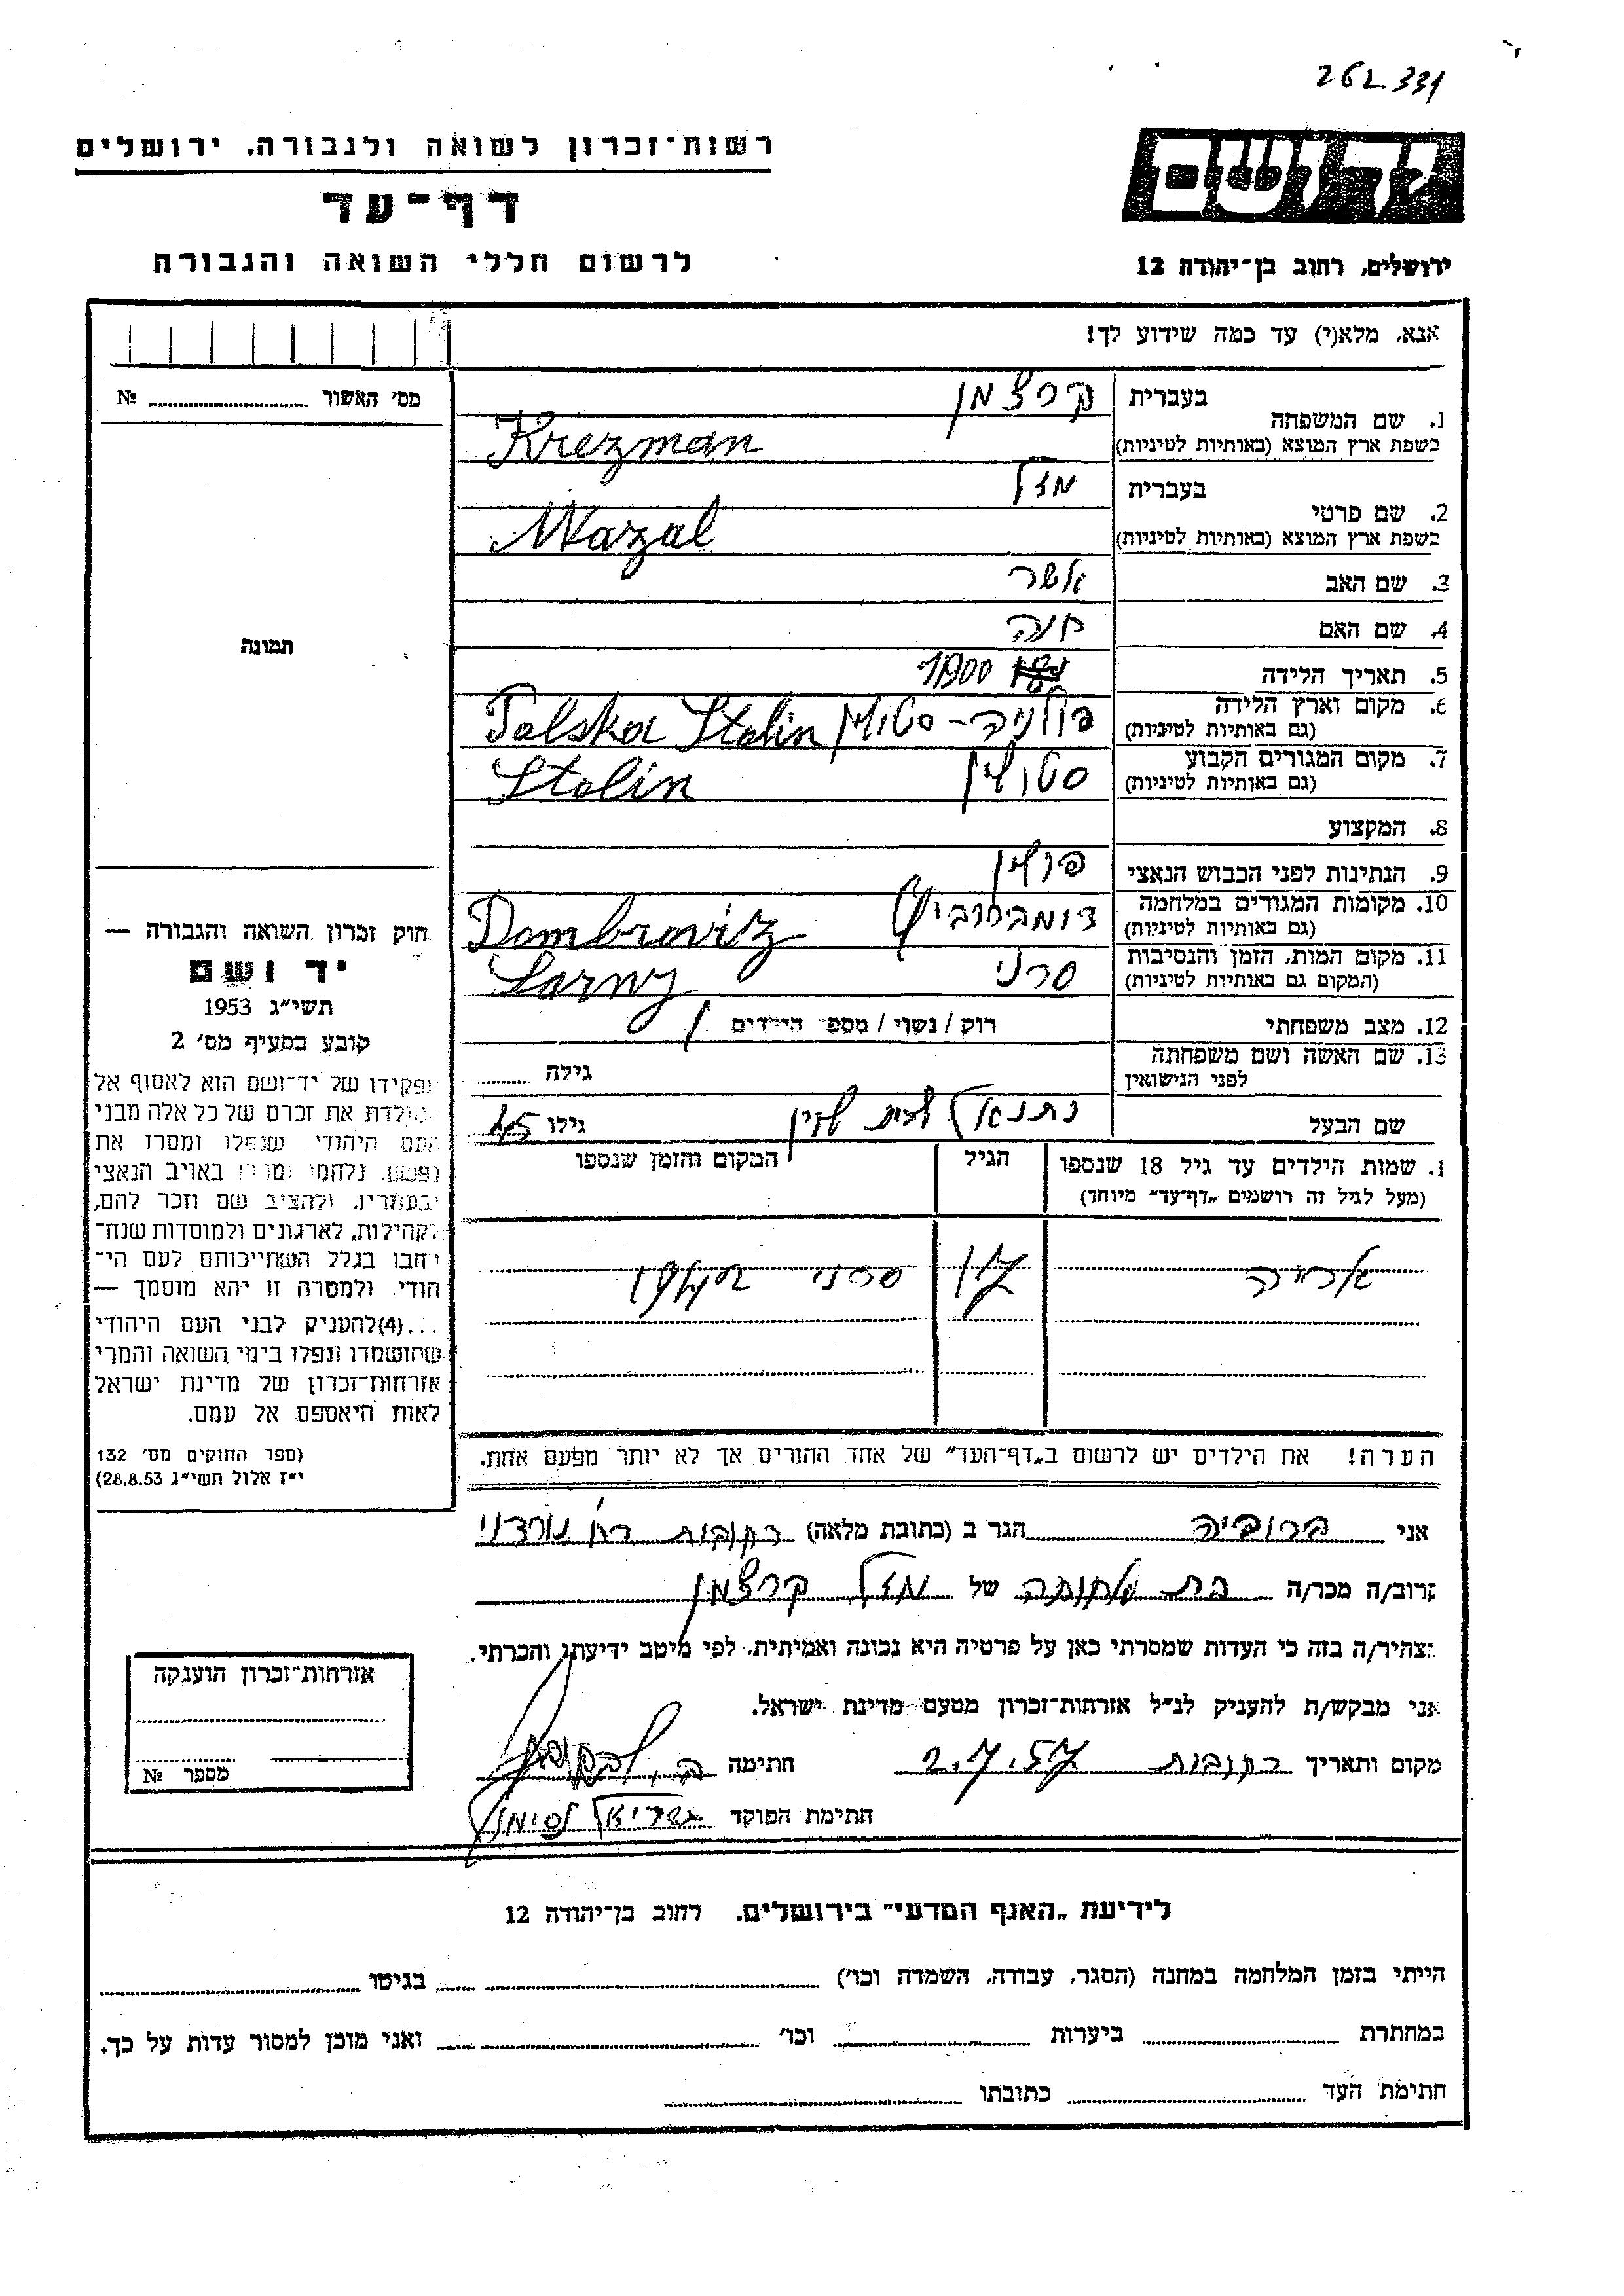 262331
רשות־זכרון לשואה ולגבורה, ירושלים
דף־עד
לרשום חללי השואה והגבורה
ידושם
ירושלים, רחוב בן־יהודה 12
אנא, מלא(י) עד כמה שידוע לך!
מס׳ האשור № ..........
1. שם המשפחה בעברית קרצמן
בשפת ארץ המוצא (באותיות לטיניות) Krezman
2. שם פרטי בעברית מזל
בשפת ארץ המוצא (באותיות לטיניות) Mazal
3. שם האב אשר
4. שם האם חנה
5. תאריך הלידה 1900
6. מקום וארץ הלידה (גם באותיות לטיניות) פולניה - סטולין Polska Stolin
7. מקום המגורים הקבוע (גם באותיות לטיניות) סטולין Stolin
8. המקצוע
9. הנתינות לפני הכבוש הנאצי פולין
10. מקומות המגורים במלחמה (גם באותיות לטיניות) דומברוביץ Dombroviz
11. מקום המות, הזמן והנסיבות (המקום גם באותיות לטיניות) סרני Sarny
12. מצב משפחתי רוק / נשוי / מספר הילדים 1
13. שם האשה ושם משפחתה לפני הנישואין גילה ......
שם הבעל נתנאל גילו 45
תמונה
חוק זכרון השואה והגבורה —
יד ושם
תשי״ג 1953
קובע בסעיף מס׳ 2
תפקידו של יד־ושם הוא לאסוף אל
המולדת את זכרם של כל אלה מבני
העם היהודי, שנפלו ומסרו את
נפשם, נלחמו ומרדו באויב הנאצי
ובעוזריו, ולהציב שם וזכר להם,
לקהילות, לארגונים ולמוסדות שנח־
רבו בגלל השתייכותם לעם הי־
הודי, ולמטרה זו יהא מוסמך —
...(4)להעניק לבני העם היהודי
שהושמדו ונפלו בימי השואה והמרי
אזרחות־זכרון של מדינת ישראל
לאות היאספם אל עמם.
(ספר החוקים מס׳ 132
י״ז אלול תשי״ג 28.8.53)
1. שמות הילדים עד גיל 18 שנספו הגיל המקום והזמן שנספו
(מעל לגיל זה רושמים „דף־עד״ מיוחד)
אריה 17 סרני
הערה! את הילדים יש לרשום ב„דף־העד״ של אחד ההורים אך לא יותר מפעם אחת.
אני ברוביה הגר ב (כתובת מלאה) רחובות רח' נורדני
קרוב/ה מכר/ה בת אחותה של מזל קרצמן
מצהיר/ה בזה כי העדות שמסרתי כאן על פרטיה היא נכונה ואמיתית, לפי מיטב ידיעתי והכרתי.
אני מבקש/ת להעניק לנ״ל אזרחות־זכרון מטעם מדינת ישראל.
מקום ותאריך רחובות 2.7.57 חתימה
חתימת הפוקד
אזרחות־זכרון הוענקה
מספר №
לידיעת „האגף המדעי״ בירושלים, רחוב בן־יהודה 12
הייתי בזמן המלחמה במחנה (הסגר, עבודה, השמדה וכו׳) .......... בגיטו ..........
במחתרת .......... ביערות .......... וכו׳ .......... ואני מוכן למסור עדות על כך.
חתימת העד .......... כתובתו ..........